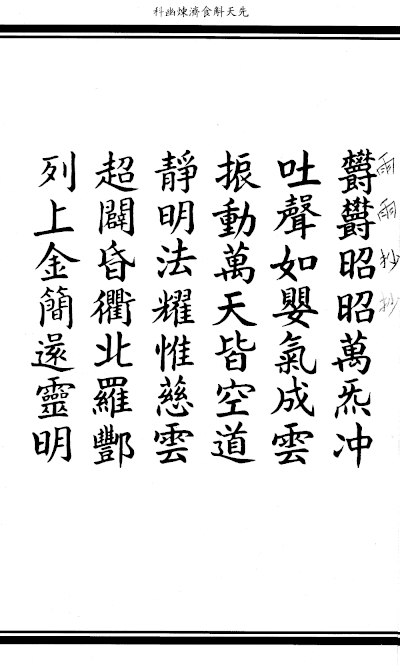 先天斛食濟煉幽科
雨雨抄抄
欝欝昭昭萬炁冲
吐聲如嬰氣成雲
振動萬天皆空道
靜明法耀惟慈雲
超闢昏衢北羅酆
列上金簡還靈明